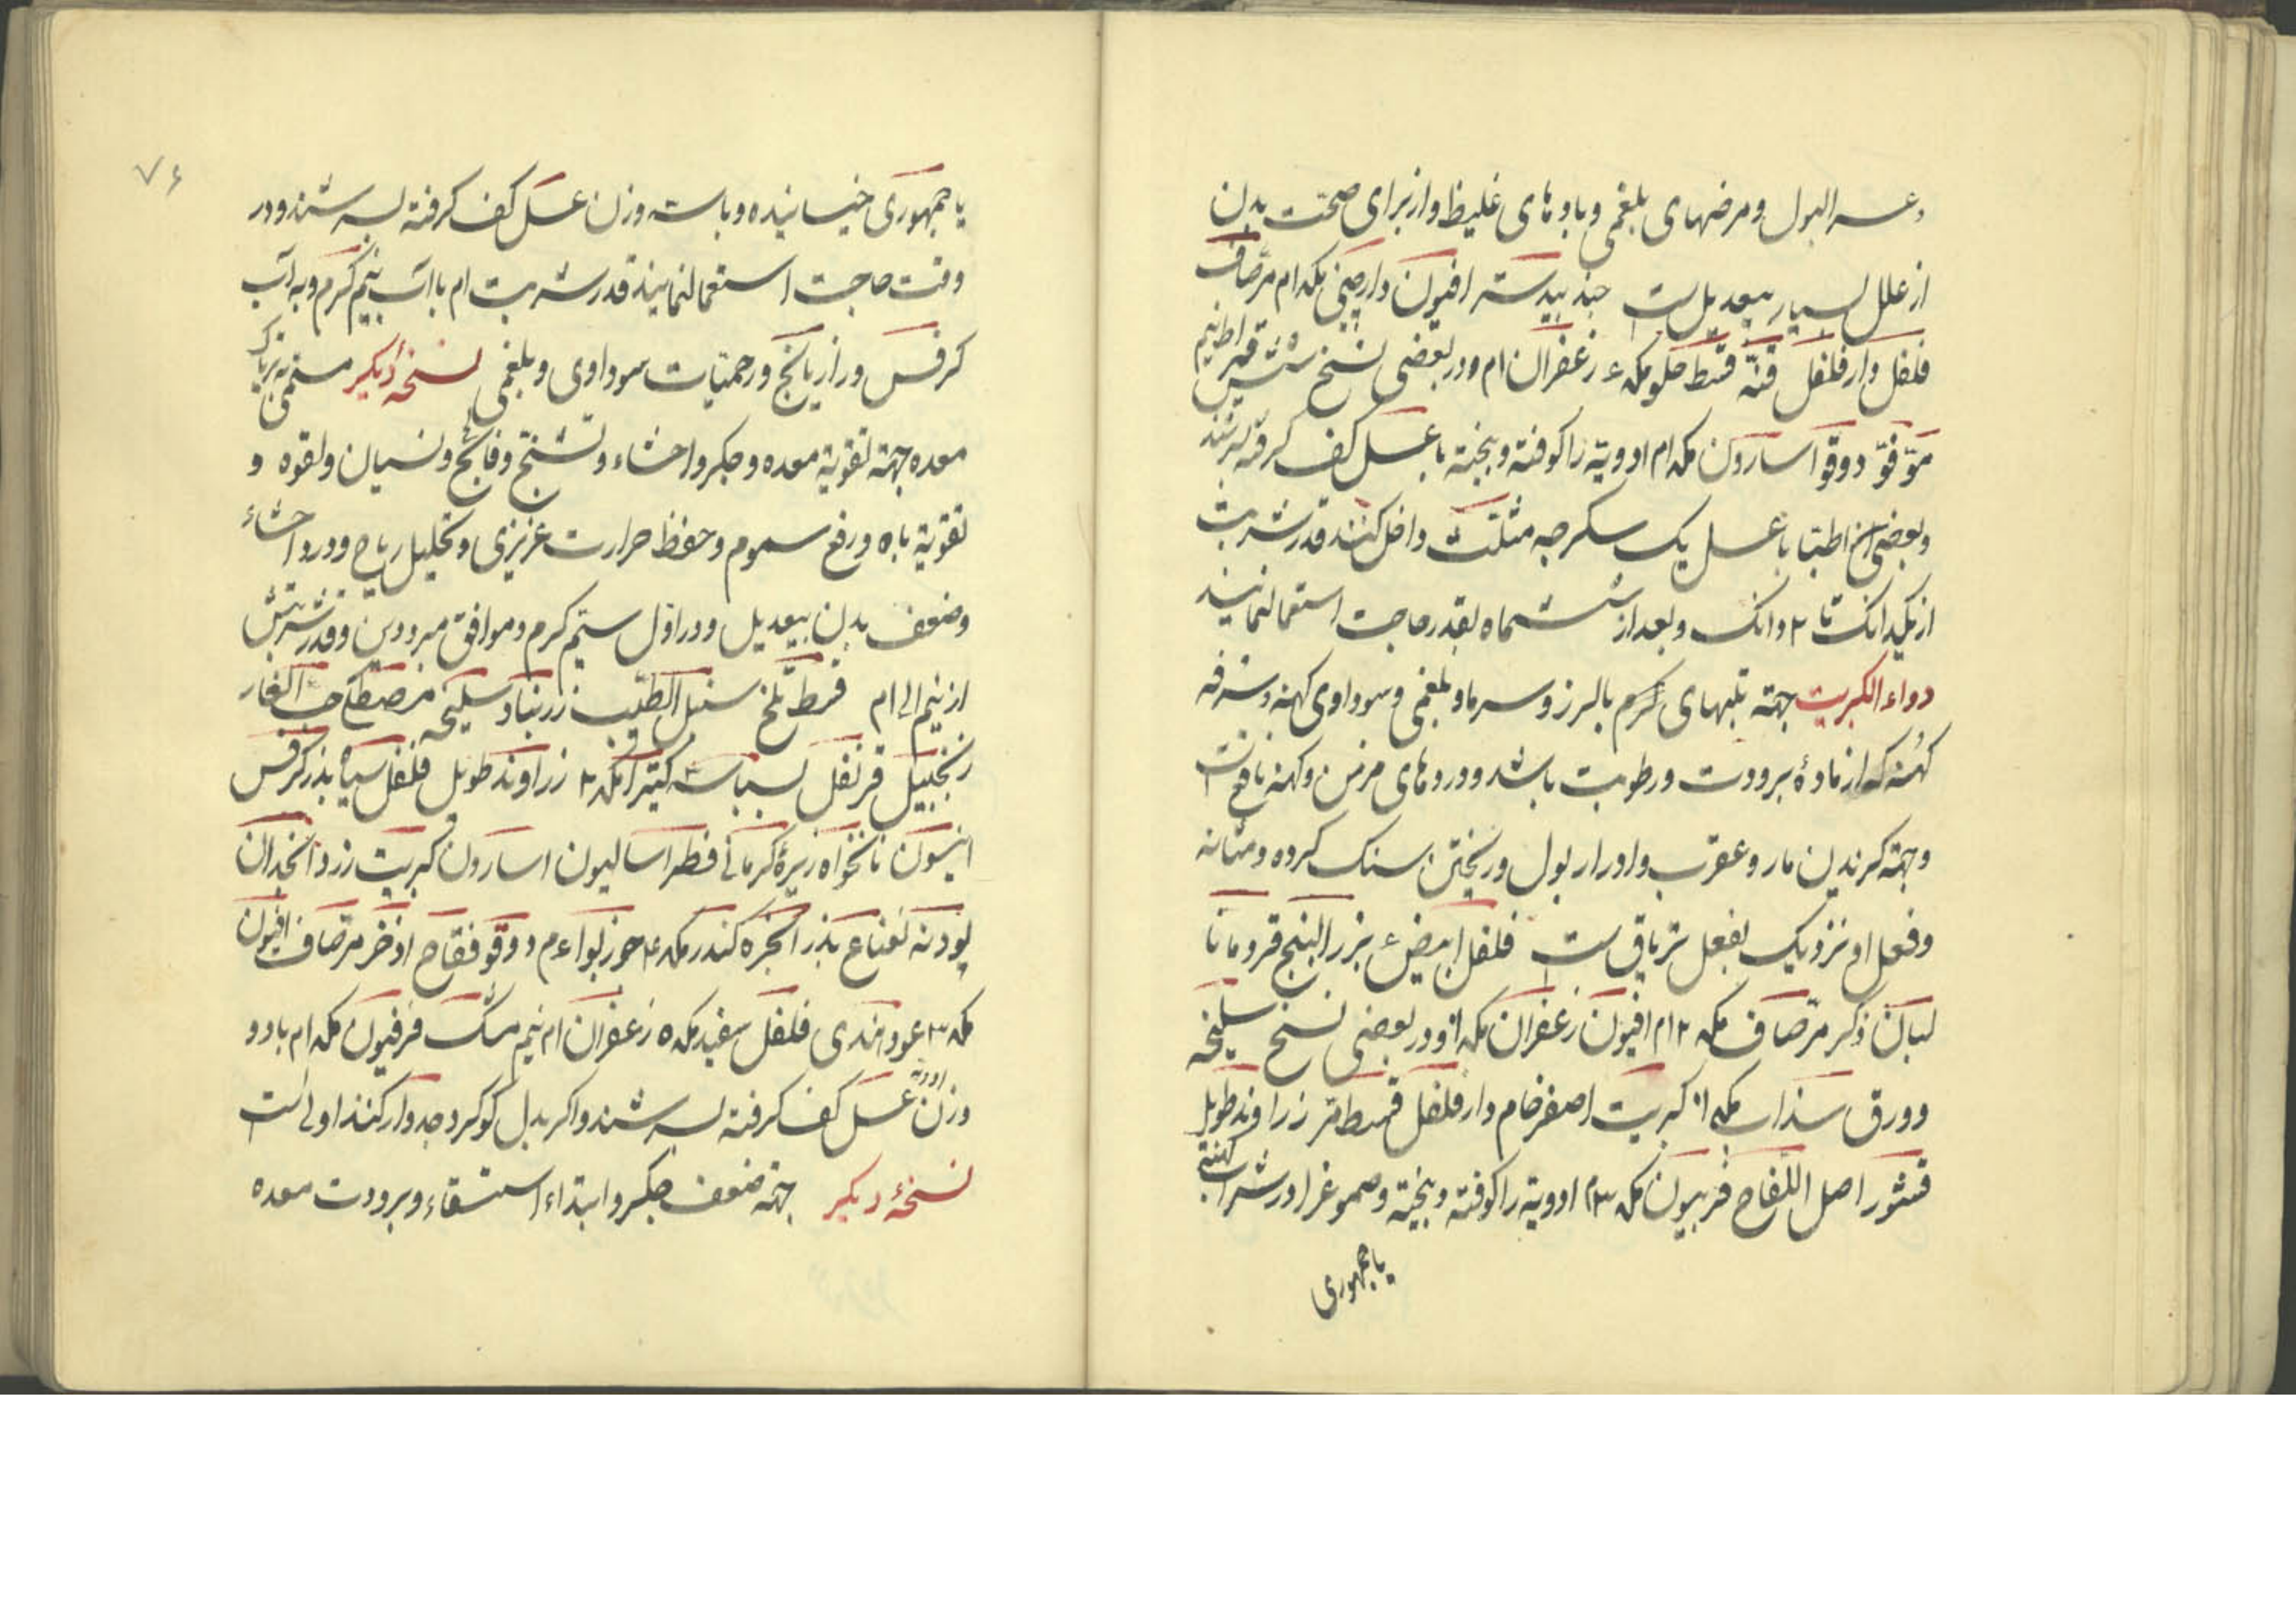 وعسر البول و مرضهای بلغمی و بادهای غلیظ و از برای صحّت بدن
از علل بسیار بیعدیل است جند بیدستر افیون دارچینی مکد ام مرّ صاف
فلفل دارفلفل قنّه قسط حلو مکد ۶ زعفران ام و در بعضی نسخ
مو فوّ دوقو آسارون مکد ام ادویة را کوفته و بیخته با عسل کف کرفته بسرشند
و بعضی از اطبّا با عسل یک سکرجه مثلّث داخل کنند قدر شربت
از یکدانک تا ۲ دانک و بعد از ششماه بقدر حاجت استعمال نمایند
دواء الکبریت جهة تبهای کرم بالرز و سرما و بلغمی و سوداوی کهنه و سرفه
کهنه که از مادهٔ برودت و رطوبت باشد و دردهای مزمن و کهنه نافع است
و جهة کزیدن مار و عقرب و ادرار بول و ریختن سنک کرده و مثانه
و فعل او نزدیک بفعل تریاق است فلفل ابیض ۶ بزر البنج قردمانا
لبان ذکر مرّ صاف مکد ۲ ام افیون زعفران مکد ا و در بعضی نسخ سلیخه
و ورق سذاب مکد ا کبریت اصفر خام دارفلفل قسط مرّ زراوند طویل
قشور اصل اللفاح فربیون مکد ۳ م ادویة را کوفته و بیخته و صموغ را در شراب کهنه
یا جمهوری
۷۶
یا جمهوری خیسانیده و با سه وزن عسل کف کرفته بسرشند و در
وقت حاجت استعمال نمایند قدر شربت ام با آب نیم کرم و به آب
کرفس و رازیانج و در حمیّات سوداوی و بلغمی نسخهٔ دیکر مسمّی به تریاک
معده جهة تقویة معده و جکر و احشاء و تشنّج و فالج و نسیان و لقوه و
تقویة باه و رفع سموم و حفظ حرارت غریزی و تحلیل ریاح و درد احشاء
و ضعف بدن بیعدیل و در اوّل سیّم کرم و موافق مبرودین و قدر شربتش
از نیم الی ام قسط تلخ سنبل الطیب زرنباد سلیخه مصطکی حب الغار
زنجبیل قرنفل بسباسه کتیرا مکد ۲ زراوند طویل فلفل سیاه بذر کرفس
انیسون نانخواه زیرهٔ کرمانی فطراسالیون اسارون کبریت زرد انجدان
پودنه نعناع بذر انجره کندر مکد ۴ جوزبوا ۶ م دوقو فقاح اذخر مرّ صاف افیون
مکد ۳ عود هندی فلفل سفید مکد ۵ زعفران ام نیم مشک فرفیون مکد ام با دو
وزن ادویه عسل کف کرفته بسرشند و اکر بدل کوکرد جدوار کنند اولی است
نسخهٔ دیکر جهة ضعف جکر و ابتداء استسقاء و برودت معده